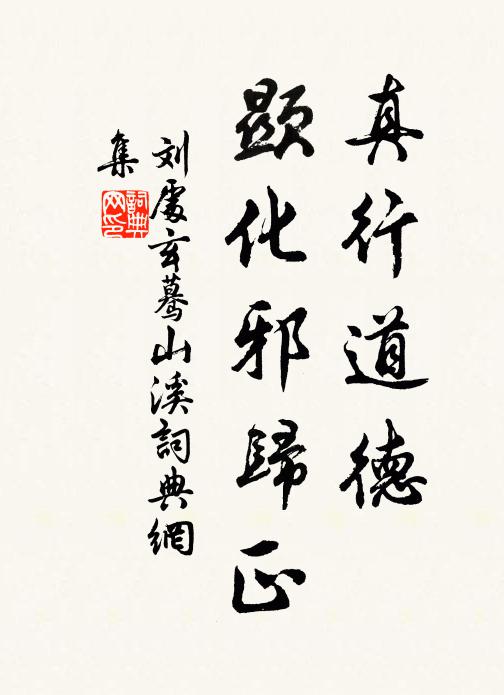 真行道德
顯化邪歸正
刘處玄驀山溪詞典網
集
詞典
网印